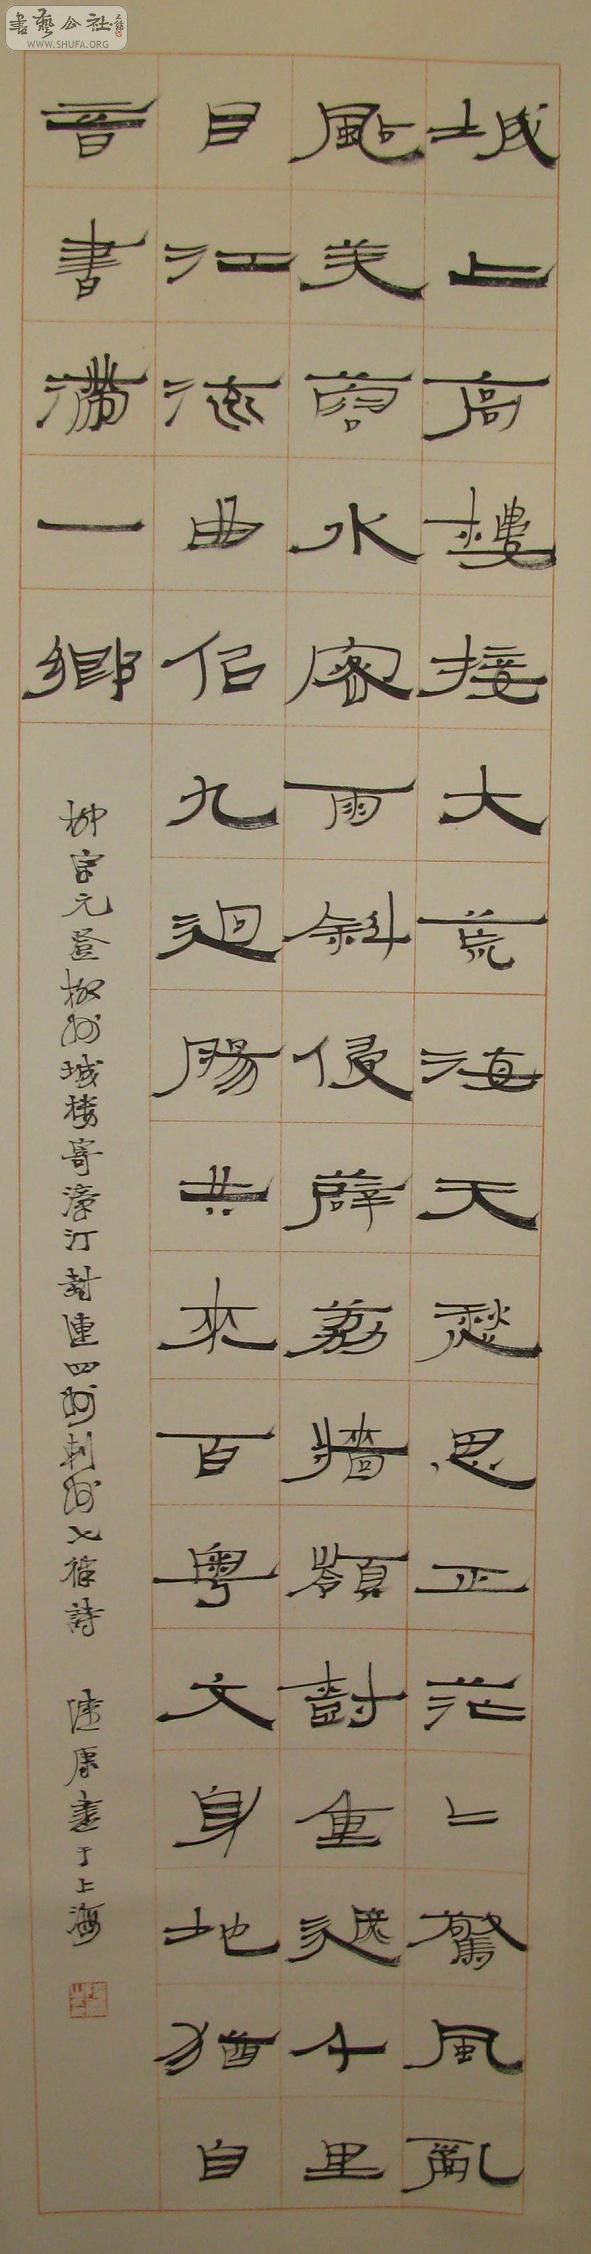 書艺公社
WWW.SHUFA.ORG
城上高樓接大荒海天愁思正茫〻驚風亂
颭芙蓉水密雨斜侵薜荔牆嶺封重遮千里
目江流曲似九迴腸共來百粤文身地猶自
音書滯一鄉
柳宗元登柳州城楼寄漳汀封連四州刺州七律詩 康書于上海